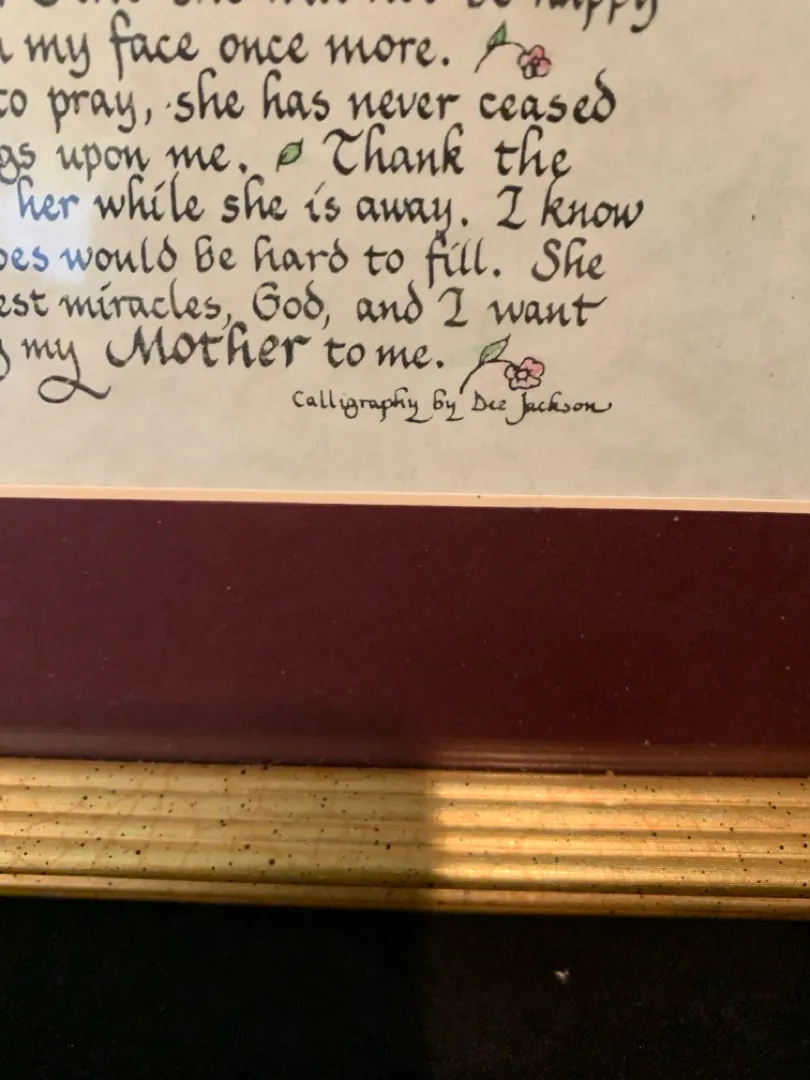 she not be happy
my face once more.
to pray, she has never ceased
upon me. Thank the
her while she is away. I know
would be hard to fill. She
miracles, God, and I want
my Mother to me.
Calligraphy by Dee Jackson